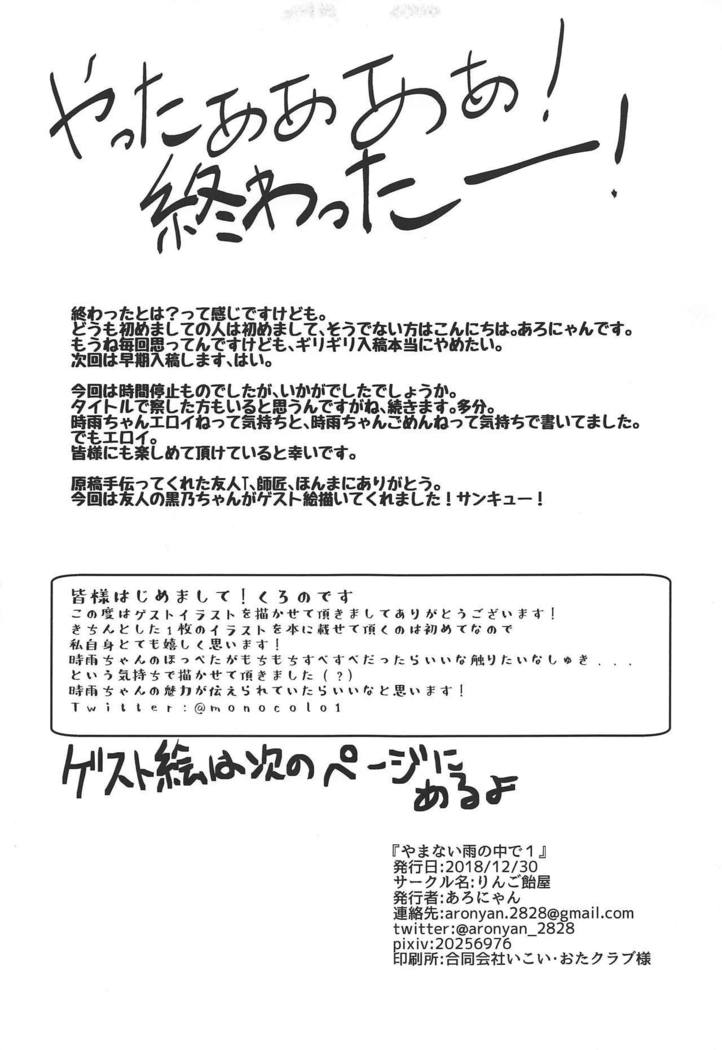 やったぁぁぁぁ!
終わったー!
終わったとは?って感じですけども。
どうも初めましての人は初めまして、そうでない方はこんにちは。あろにゃんです。
もうね毎回思ってんですけども、ギリギリ入稿本当にやめたい。
次回は早期入稿します、はい。
今回は時間停止ものでしたが、いかがでしたでしょうか。
タイトルで察した方もいると思うんですがね、続きます。多分。
時雨ちゃんエロイねって気持ちと、時雨ちゃんごめんねって気持ちで書いてました。
でもエロイ。
皆様にも楽しめて頂けていると幸いです。
原稿手伝ってくれた友人T、師匠、ほんまにありがとう。
今回は友人の黒乃ちゃんがゲスト絵描いてくれました!サンキュー!
皆様はじめまして!くろのです
この度はゲストイラストを描かせて頂きましてありがとうございます!
きちんとした1枚のイラストを本に載せて頂くのは初めてなので
私自身とても嬉しく思います!
時雨ちゃんのほっぺたがもちもちすべすべだったらいいな触りたいなしゅき...
という気持ちで描かせて頂きました(?)
時雨ちゃんの魅力が伝えられていたらいいなと思います!
Twitter:@monocolo1
ゲスト絵は次のページに
あるよ
『やまない雨の中で1』
発行日:2018/12/30
サークル名:りんご飴屋
発行者:あろにゃん
連絡先:aronyan.2828@gmail.com
twitter:@aronyan_2828
pixiv:20256976
印刷所:合同会社いこい・おたクラブ様